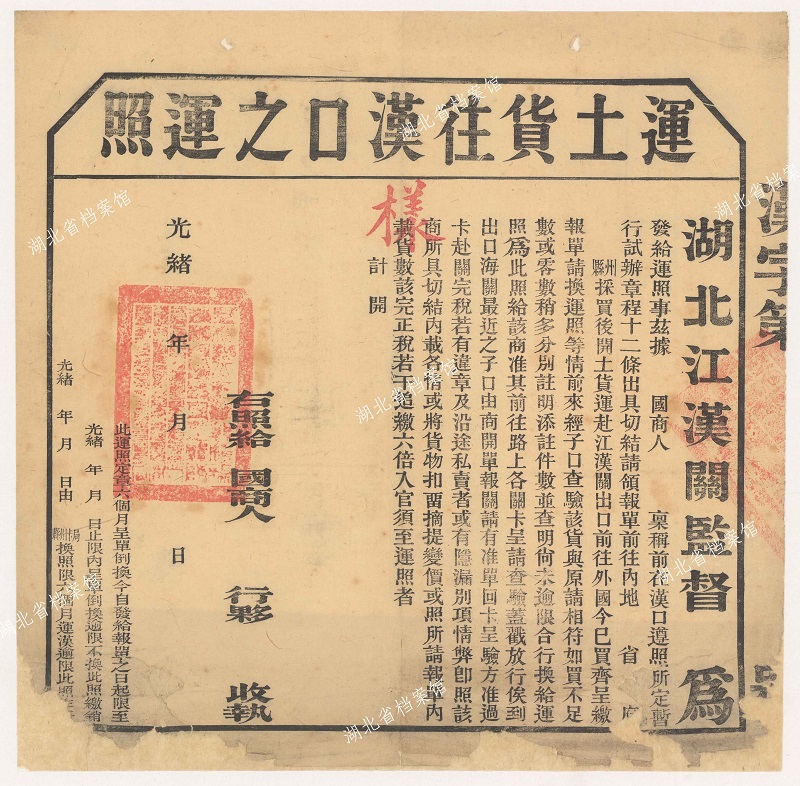 運土貨往漢口之運照
漢字第
號
湖北江漢關監督 爲
發給運照事茲據 國商人 稟稱前在漢口遵照所定暫
行試辦章程十二條出具切結請領報單前往內地 省 府
州縣採買後開土貨運赴江漢關出口前往外國今已買齊呈繳
報單請換運照等情前來經子口查驗該貨與原請相符如買不足
數或零數稍多分別註明添註件數並查明尚未逾限合行換給運
照爲此照給該商准其前往路上各關卡呈請查驗蓋戳放行俟到
出口海關最近之子口由商開單報關請有准單回卡呈驗方准過
卡赴關完稅若有違章及沿途私賣者或有隱漏別項情弊卽照該
商所具切結內載各情或將貨物扣留摘提變價或照所請報單內
載貨數該完正稅若干追繳六倍入官須至運照者
計開
樣
右照給 國商人 行夥 收執
光緒 年 月 日
此運照定章六個月呈單倒換今自發給報單之日起限至
光緒 年 月 日止限內呈單倒換逾限不換此照繳銷
光緒 年 月 日由 局卡州縣換照限 個月運漢逾限此照
湖北省档案馆
湖北省档案馆
湖北省档案馆
湖北省档案馆
湖北省档案馆
湖北省档案馆
湖北省档案馆